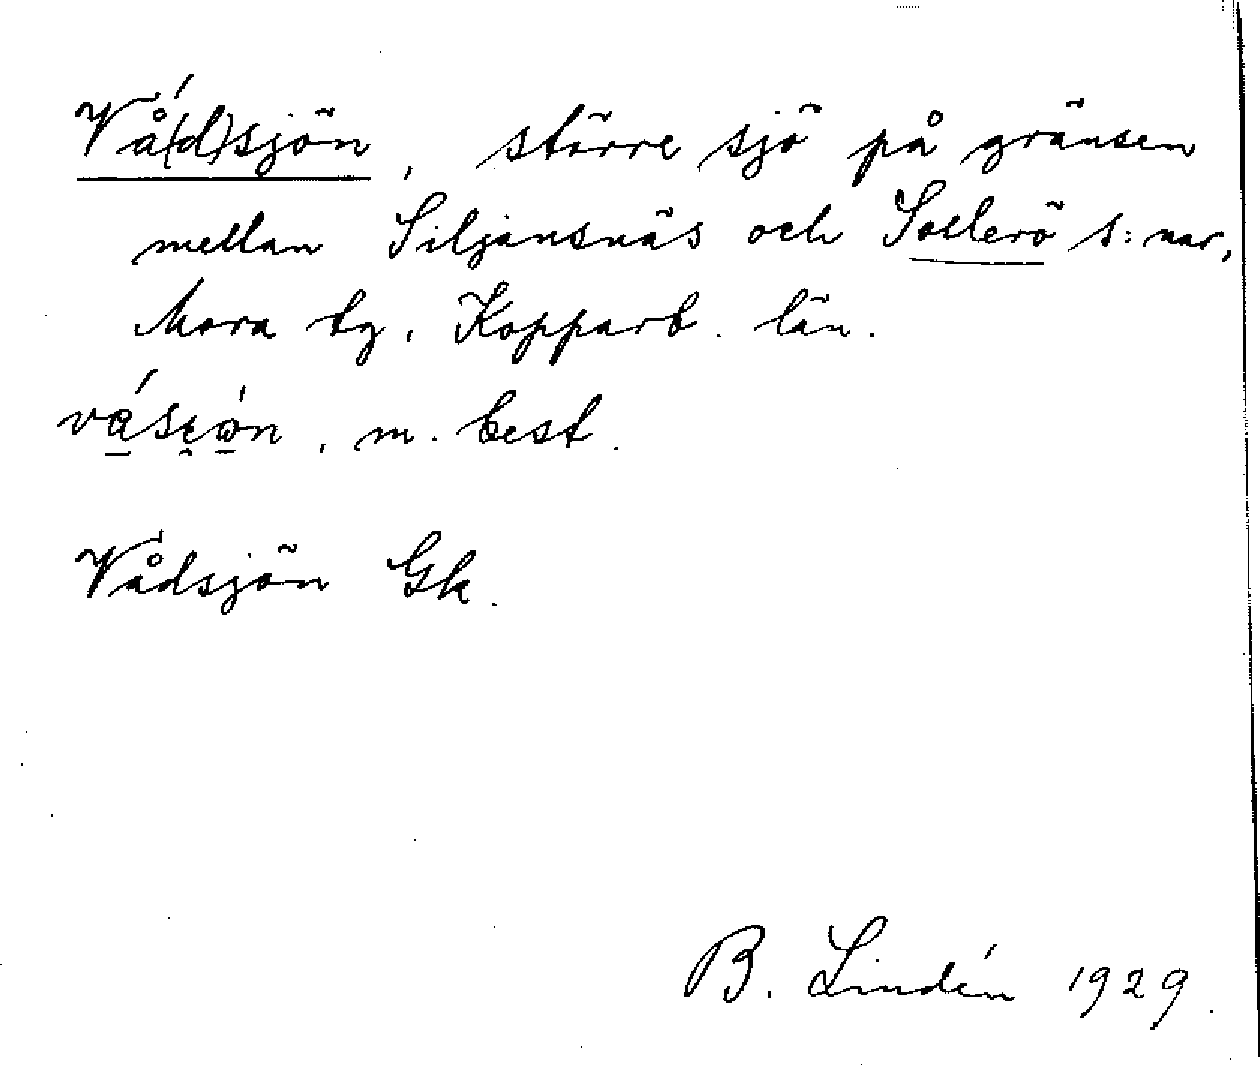 Vå(d)sjön, större sjö på gränsen
mellan Siljansnäs och Sollerö s:nar,
Mora tg, Kopparb. län.
m. best.
Vådsjön Gk.
B. Lindén 1929.